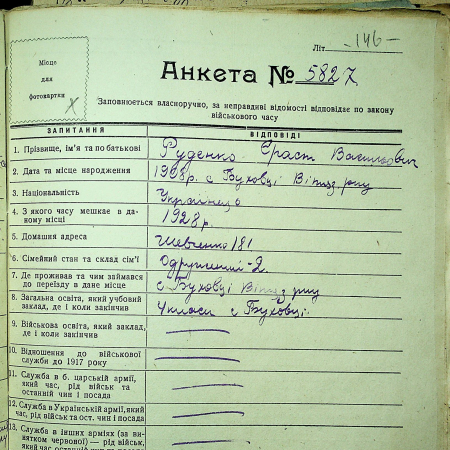 Літ -146-
Місце
для
фотокартки
Анкета № 5827
Заповнюється власноручно, за неправдиві відомості відповідає по закону
військового часу
ЗАПИТАННЯ ВІДПОВІДІ
1. Прізвище, ім'я та по батькові Руденко Ераст Васильович
2. Дата та місце народження 1908р. с Буховці
3. Національність Українець
4. З якого часу мешкає в да-
ному місці 1928 р.
5. Домашня адреса Шевченко 181
6. Сімейний стан та склад сім'ї Одружений-2.
7. Де проживав та чим займався
до переїзду в дане місце с Буховці
8. Загальна освіта, який учбовий
заклад, де і коли закінчив 4 класи с Буховці
9. Військова освіта, який заклад,
де і коли закінчив
10. Відношення до військової
служби до 1917 року
11. Служба в б. царській армії,
який час, рід військ та
останній чин і посада
12. Служба в Українській армії, який
час, рід військ та ост. чин і посада
13. Служба в інших арміях (за ви-
нятком червоної) — рід військ,